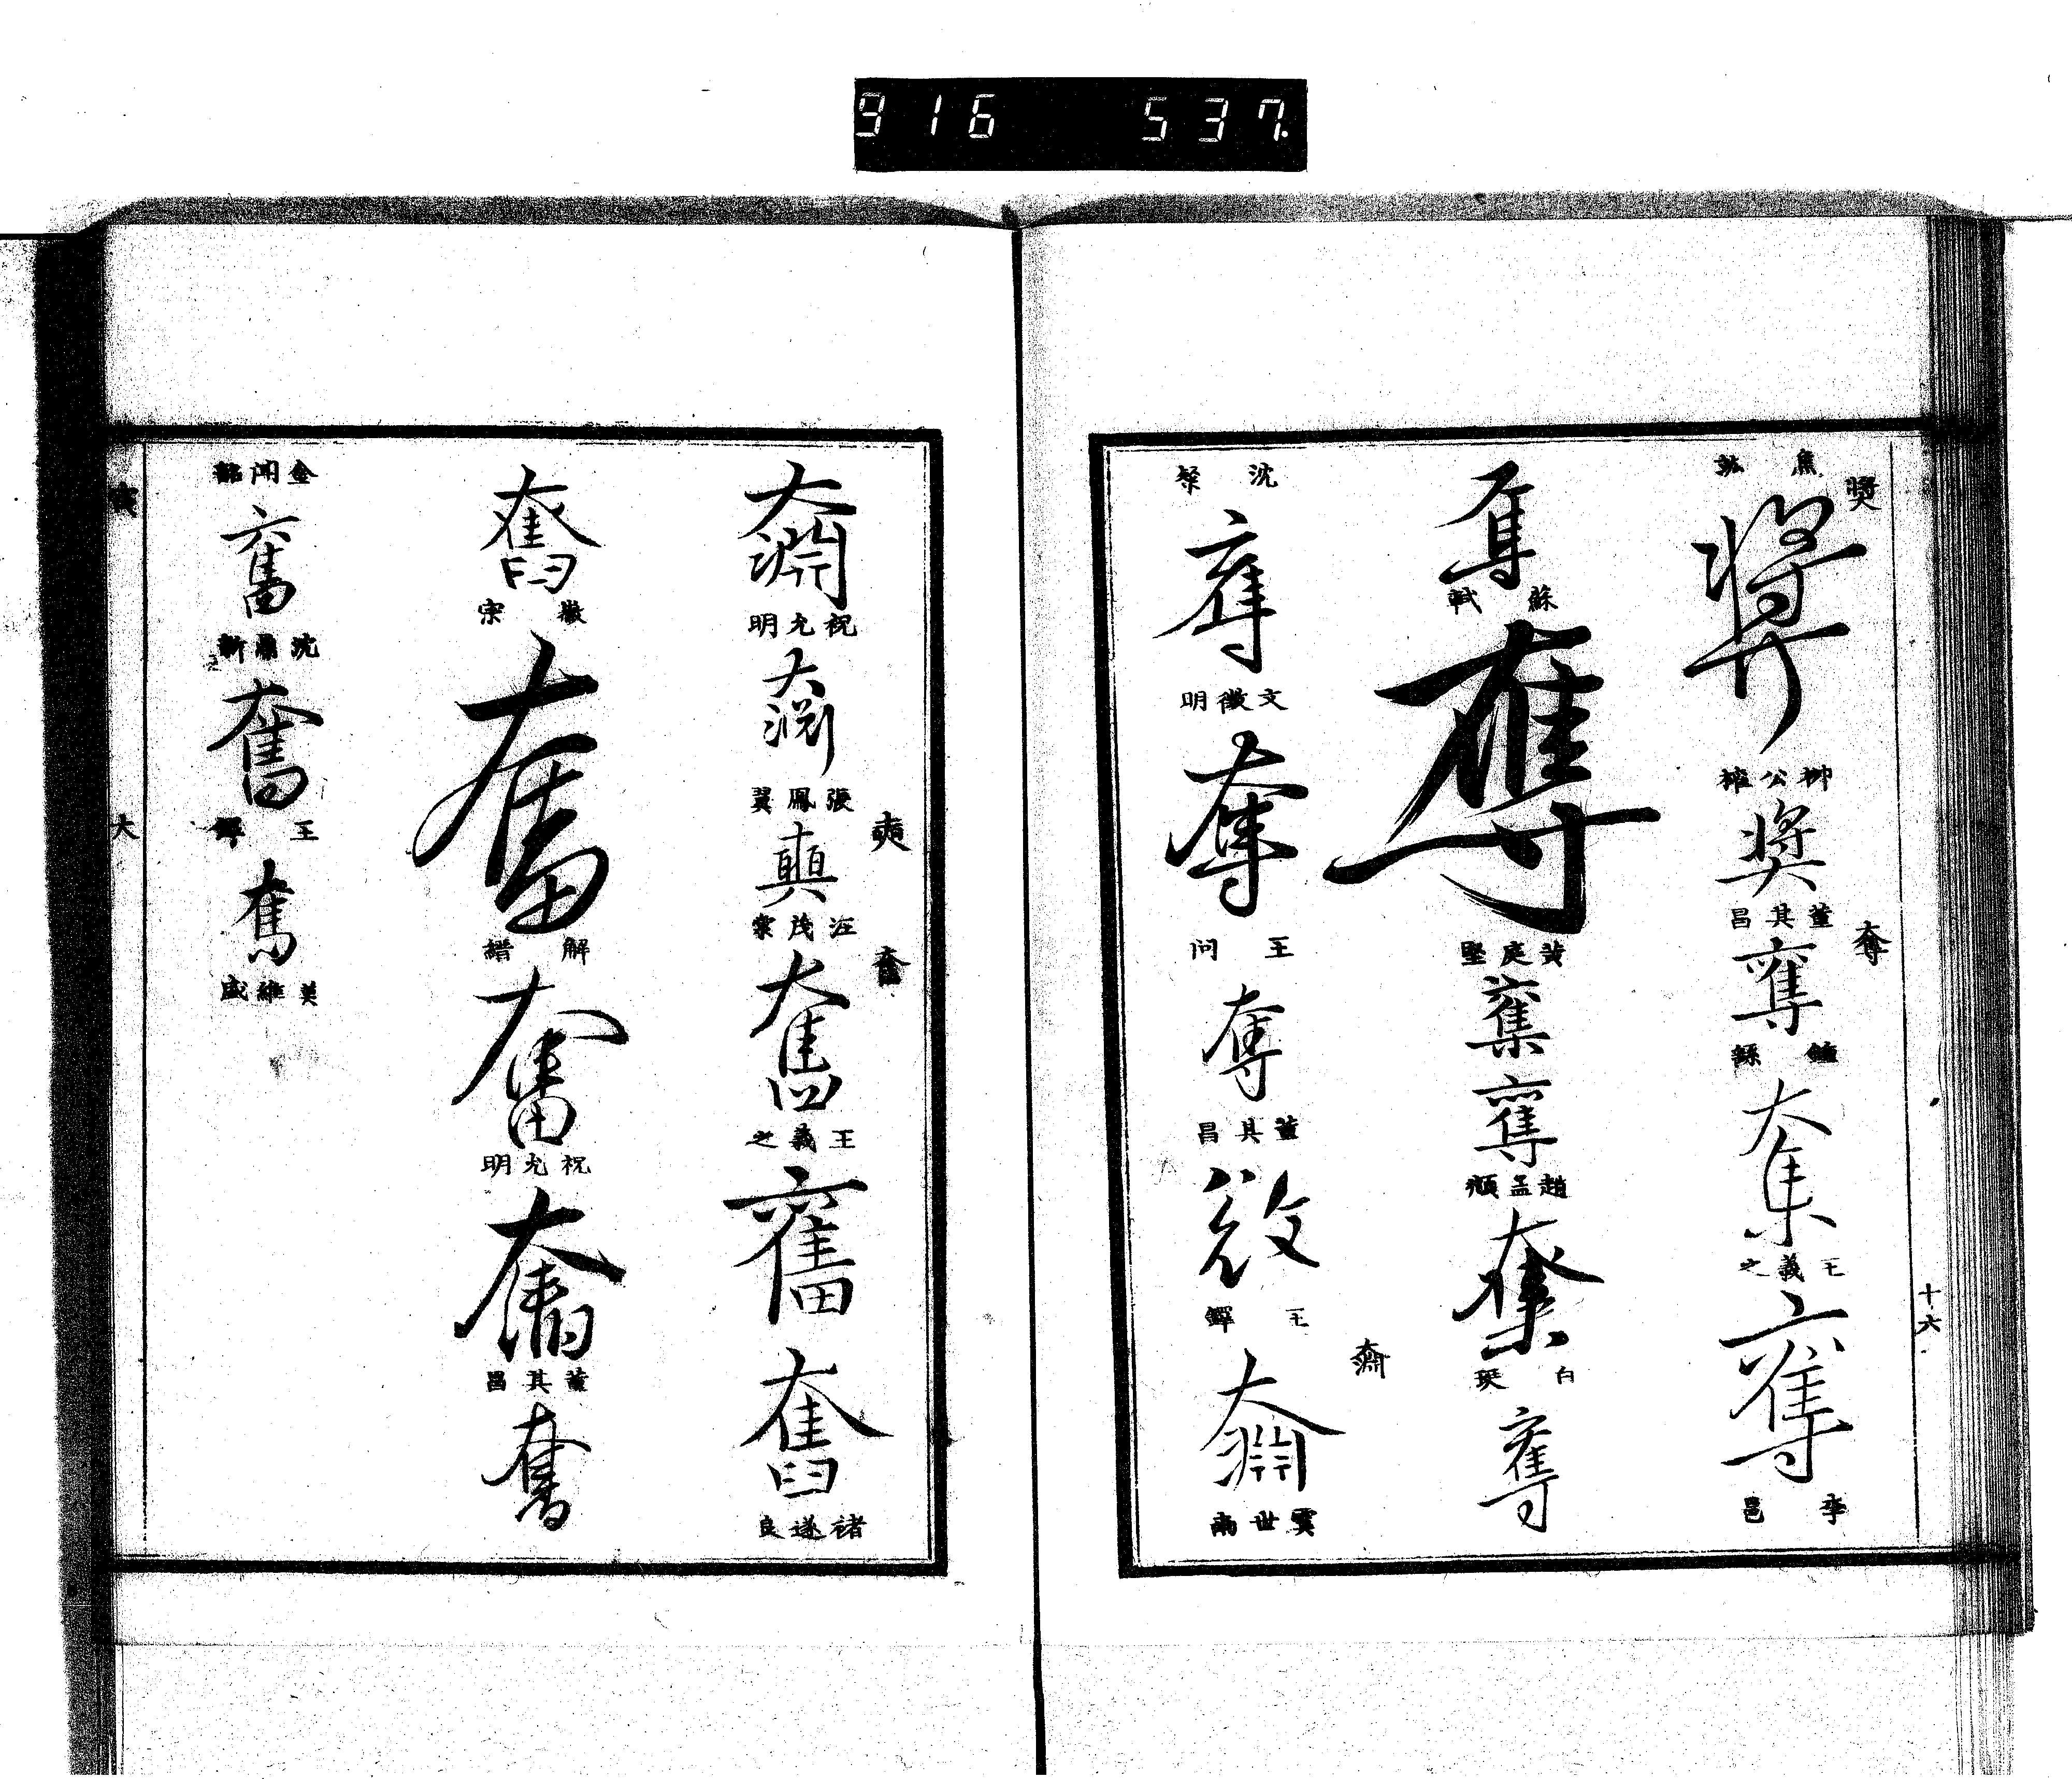 916 537.
十六
獎
焦竑
獎
柳公權
獎
董其昌
奪
奪
鍾繇
奪
王羲之
奪
李邕
奪
蘇軾
奪
黃庭堅
奪
奪
趙孟頫
奪
白珽
奪
沈粲
奪
文徵明
奪
王問
奪
董其昌
敚
王鐸
奫
奫
虞世南
奫
祝允明
奫
張鳳翼
奰
汪茂棠
奮
奮
王羲之
奮
奮
褚遂良
奮
徽宗
奮
解縉
奮
祝允明
奮
董其昌
奮
金開韶
奮
沈鼎新
奮
王鐸
奮
寅
大